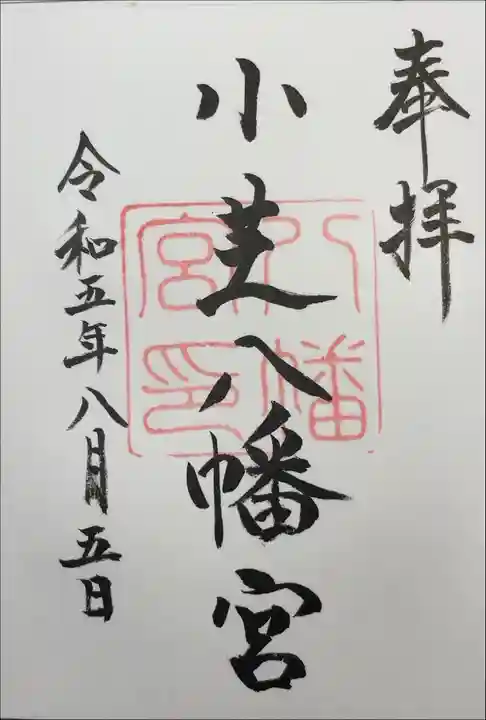 奉拝
小芝八幡宮
八幡宮印
令和五年八月五日